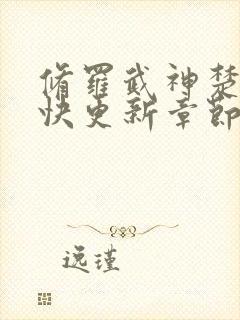 脩罹武神楚
快更新章節
逸瑾